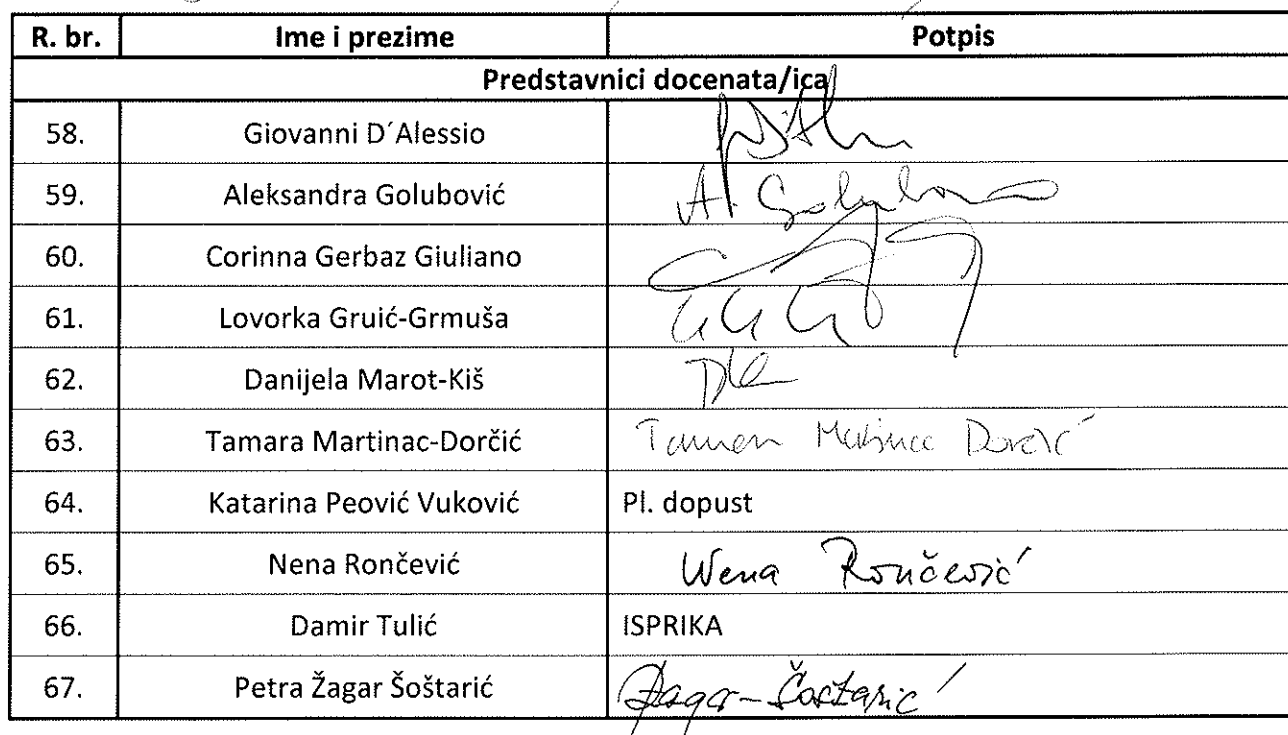 R. br. Ime i prezime Potpis
Predstavnici docenata/ica
58. Giovanni D´Alessio
59. Aleksandra Golubović A. Golubović
60. Corinna Gerbaz Giuliano
61. Lovorka Gruić-Grmuša
62. Danijela Marot-Kiš
63. Tamara Martinac-Dorčić Tamara Martinac Dorčić
64. Katarina Peović Vuković Pl. dopust
65. Nena Rončević Nena Rončević
66. Damir Tulić ISPRIKA
67. Petra Žagar Šoštarić Žagar-Šoštarić